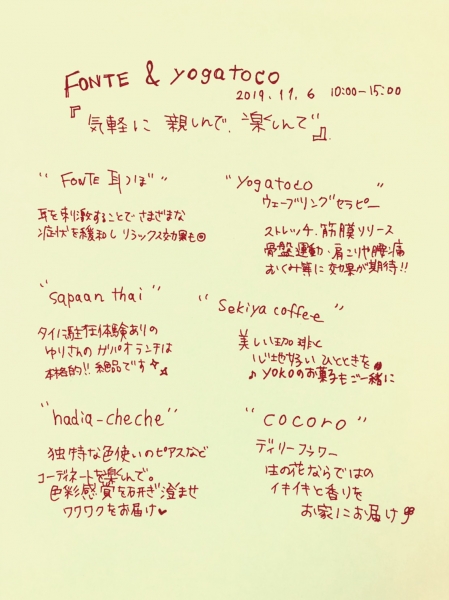 FONTE & yogatoco
2019.11.6 10:00-15:00
『気軽に 親しんで、楽しんで』
"FONTE 耳つぼ"
耳を刺激することでさまざまな
症状を緩和し リラックス効果も◎
"yogatoco"
ウェーブリングセラピー
ストレッチ、筋膜リリース
骨盤運動、肩こりや腰痛
むくみ等に効果が期待!!
"sapaan thai"
タイに駐在体験ありの
ゆりさんの ガパオランチは
本格的!! 絶品です☆
"Sekiya coffee"
美しい珈琲と
心地好い ひとときを
♪ YOKOのお菓子もご一緒に
"hadia-cheche"
独特な色使いのピアスなど
コーディネートを楽しんで。
色彩感覚を研ぎ澄ませ
ワクワクをお届け♥
"cocoro"
デイリーフラワー
の花ならではの
イキイキと香りを
お家にお届け